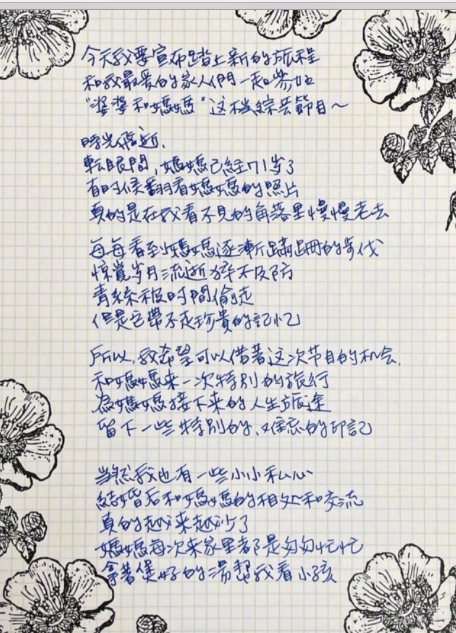 今天我要宣布踏上新的旅程
和我最爱的家人們一起參加
"婆婆和媽媽"这档綜艺節目～
時光易逝,
転眼間,媽媽已經71岁了
有时候翻看媽媽的照片
真的是在我看不見的角落里慢慢老去
每每看到媽媽逐漸蹒跚的步伐
惊觉岁月流逝猝不及防
青絲被时間偷走
但是它帶不走珍貴的記忆
所以,我希望可以借著这次节目的机会,
和媽媽来一次特别的旅行
為媽媽接下来的人生旅途
留下一些特别的、难忘的印記
当然我也有一些小小私心
結婚后和媽媽的相处和交流
真的越来越少了
媽媽每次来家里都是匆匆忙忙
拿著煲好的湯幫我看小孩